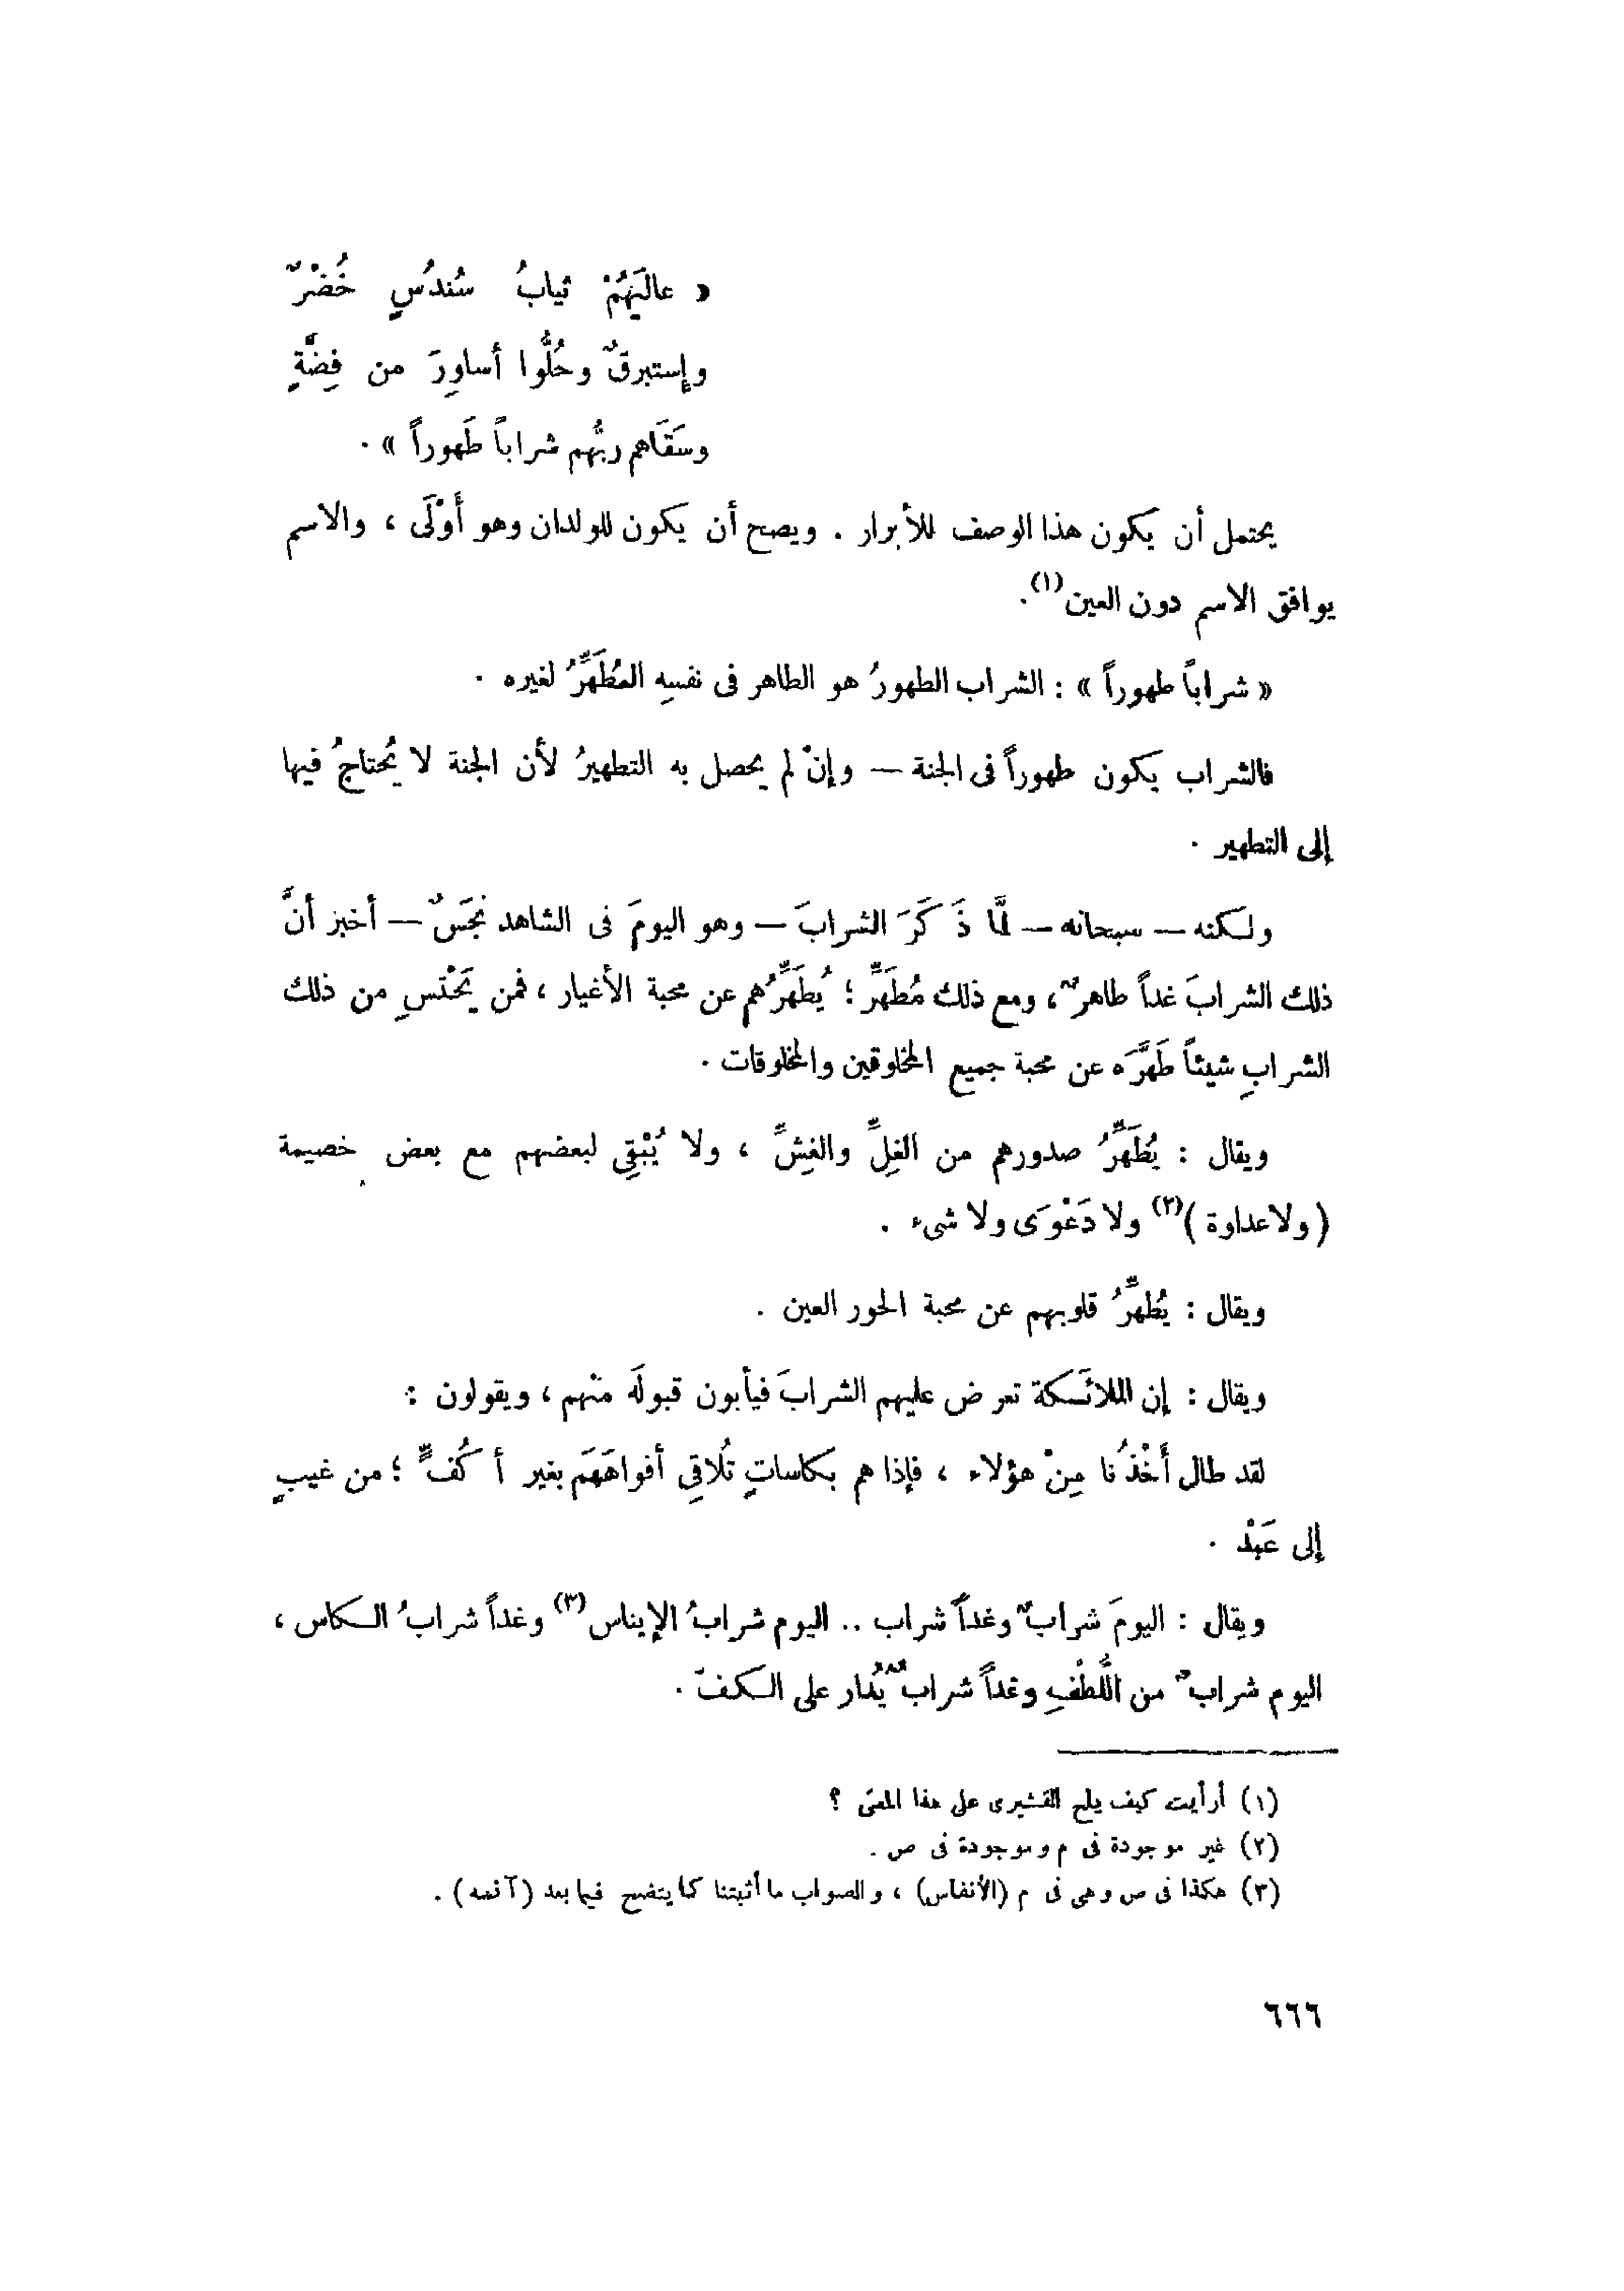 « عالَيهُمْ ثيابُ سُندُسٍ خُضْرٌ
وإستبرقٌ وحُلُّوا أساوِرَ من فِضَّةٍ
وسَقَاهم ربُّهم شراباً طَهوراً » .
يحتمل أن يكون هذا الوصف للأبرار . ويصح أن يكون للولدان وهو أَوْلَى ، والاسم
يوافق الاسم دون العين(١).
« شراباً طهوراً » : الشراب الطهورُ هو الطاهر فى نفسِه المُطَهِّرُ لغيره .
فالشراب يكون طهوراً فى الجنة — وإنْ لم يحصل به التطهيرُ لأن الجنة لا يُحتاجُ فيها
إلى التطهير .
ولكنه — سبحانه — لمَّا ذَكَرَ الشرابَ — وهو اليومَ فى الشاهد نَجَسٌ — أخبر أنَّ
ذلك الشرابَ غداً طاهرٌ ، ومع ذلك مُطَهِّر ؛ يُطَهِّرُهم عن محبة الأغيار ، فمن يَحْتَسِ من ذلك
الشرابِ شيئاً طَهَّرَه عن محبة جميع المخلوقين والمخلوقات .
ويقال : يُطَهِّرُ صدورهم من الغِلِّ والغِشِّ ، ولا يُبْقِى لبعضهم مع بعض خصيمة
( ولاعداوة )(٢) ولا دَعْوَى ولا شىء .
ويقال : يُطهِّرُ قلوبهم عن محبة الحور العين .
ويقال : إن الملائكة تعرض عليهم الشرابَ فيأبون قبولَه منهم ، ويقولون :
لقد طال أَخْذُنا مِنْ هؤلاء ، فإذا هم بكاساتٍ تُلاقِى أفواهَهَم بغير أكُفٍّ ؛ من غيبٍ
إلى عَبْد .
ويقال : اليومَ شرابٌ وغداً شراب .. اليوم شرابُ الإيناس(٣) وغداً شرابُ الكاس ،
اليوم شرابٌ من اللُّطْفِ وغداً شرابٌ يُدَار على الكفّ .
(١) أرأيت كيف يلح القشيرى على هذا المعنى ؟
(٢) غير موجودة فى م وموجودة فى ص .
(٣) هكذا فى ص وهى فى م (الأنفاس) ، والصواب ما أثبتنا كما يتضح فيما بعد (آنسه) .
٦٦٦